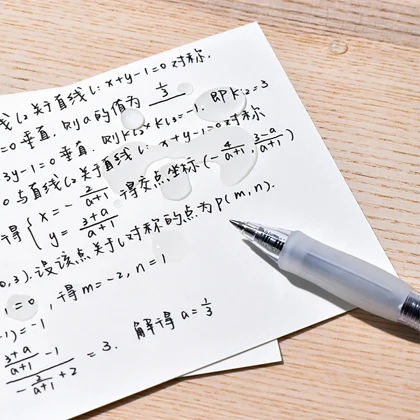 线l₂关于直线l:x+y-1=0对称.
=0垂直,则a的值为 1/3
3y-1=0垂直,则k_{l₂}×k_{l₃}=-1.即k_{l₂}=3
0与直线l₂关于直线l:x+y-1=0对称
得{x=-2/(a+1) y=(3+a)/(a+1) 得交点坐标(-4/(a+1),(3-a)/(a+1))
0,3).设该点关于l对称的点为P(m,n).
1=0,得m=-2,n=1
-1)=-1
((3+a)/(a+1)-1)/(-2/(a+1)+2)=3. 解得a=1/3